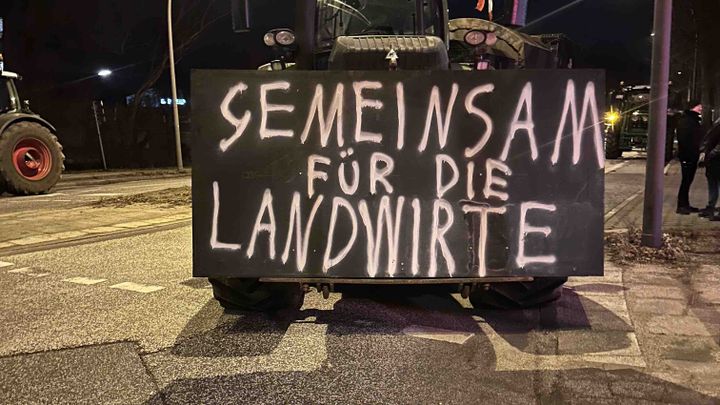 GEMEINSAM
FÜR DIE
LANDWIRTE